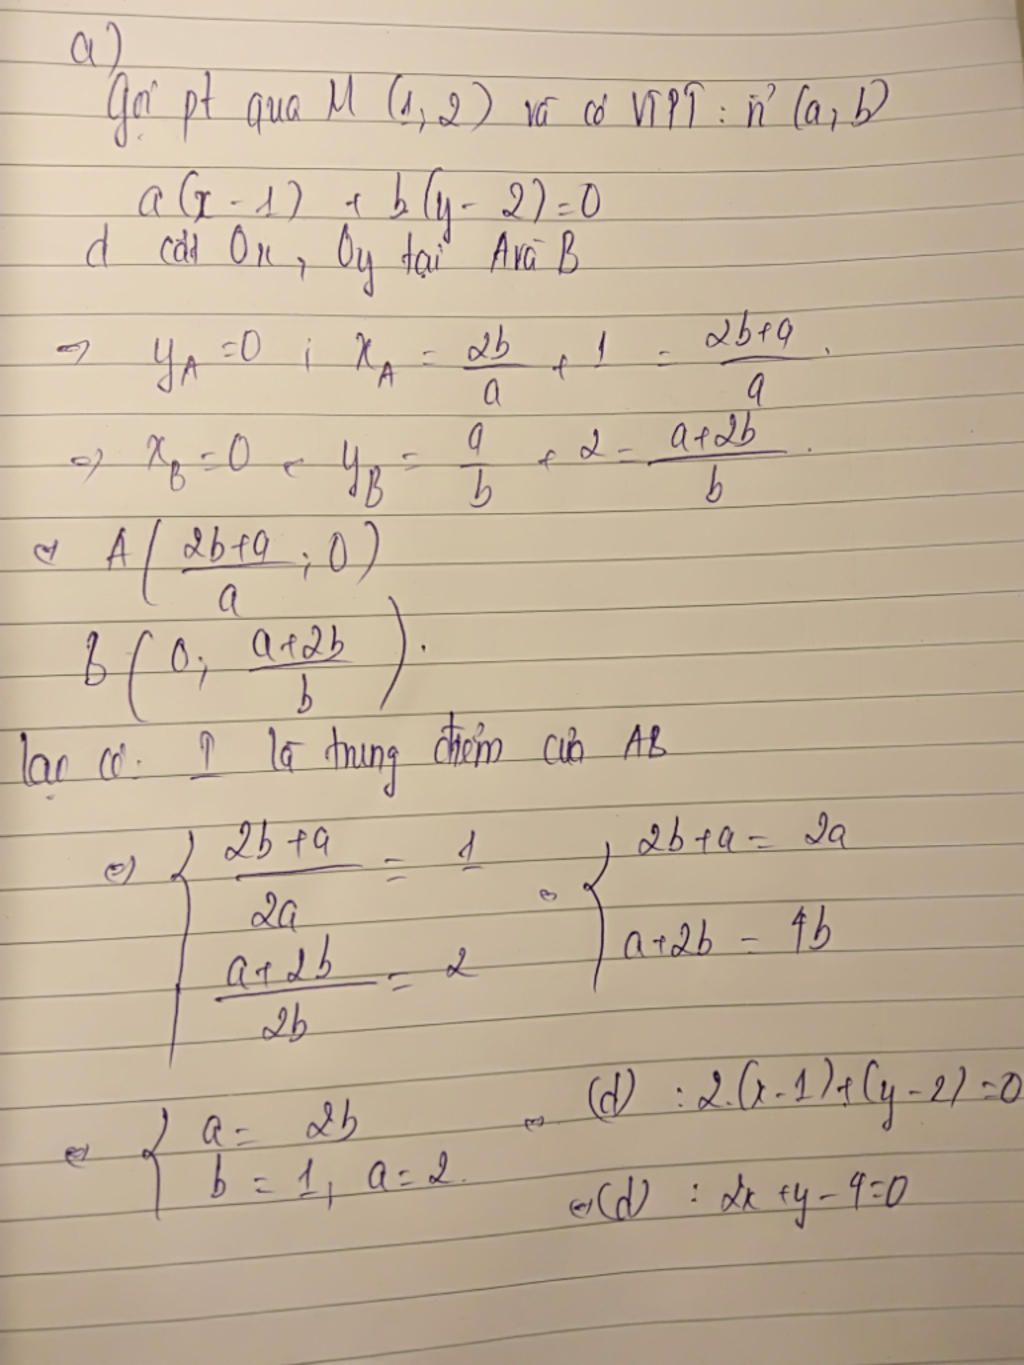 a)
Gọi pt qua M (1, 2) và có VTPT : n⃗ (a, b)
a(x - 1) + b(y - 2) = 0
d cắt Ox, Oy tại A và B
⇒ y_A = 0 ; x_A = \frac{2b}{a} + 1 = \frac{2b+a}{a}.
⇒ x_B = 0 y_B = \frac{a}{b} + 2 = \frac{a+2b}{b}.
⇔ A( \frac{2b+a}{a} ; 0 )
B( 0 ; \frac{a+2b}{b} ).
lại có: I là trung điểm của AB
⇔ { \frac{2b+a}{2a} = 1 ; \frac{a+2b}{2b} = 2 ⇔ { 2b+a = 2a ; a+2b = 4b
⇔ { a = 2b ; b = 1, a = 2. ⇔ (d) : 2.(x-1)+(y-2)=0
⇔ (d) : 2x+y-4=0